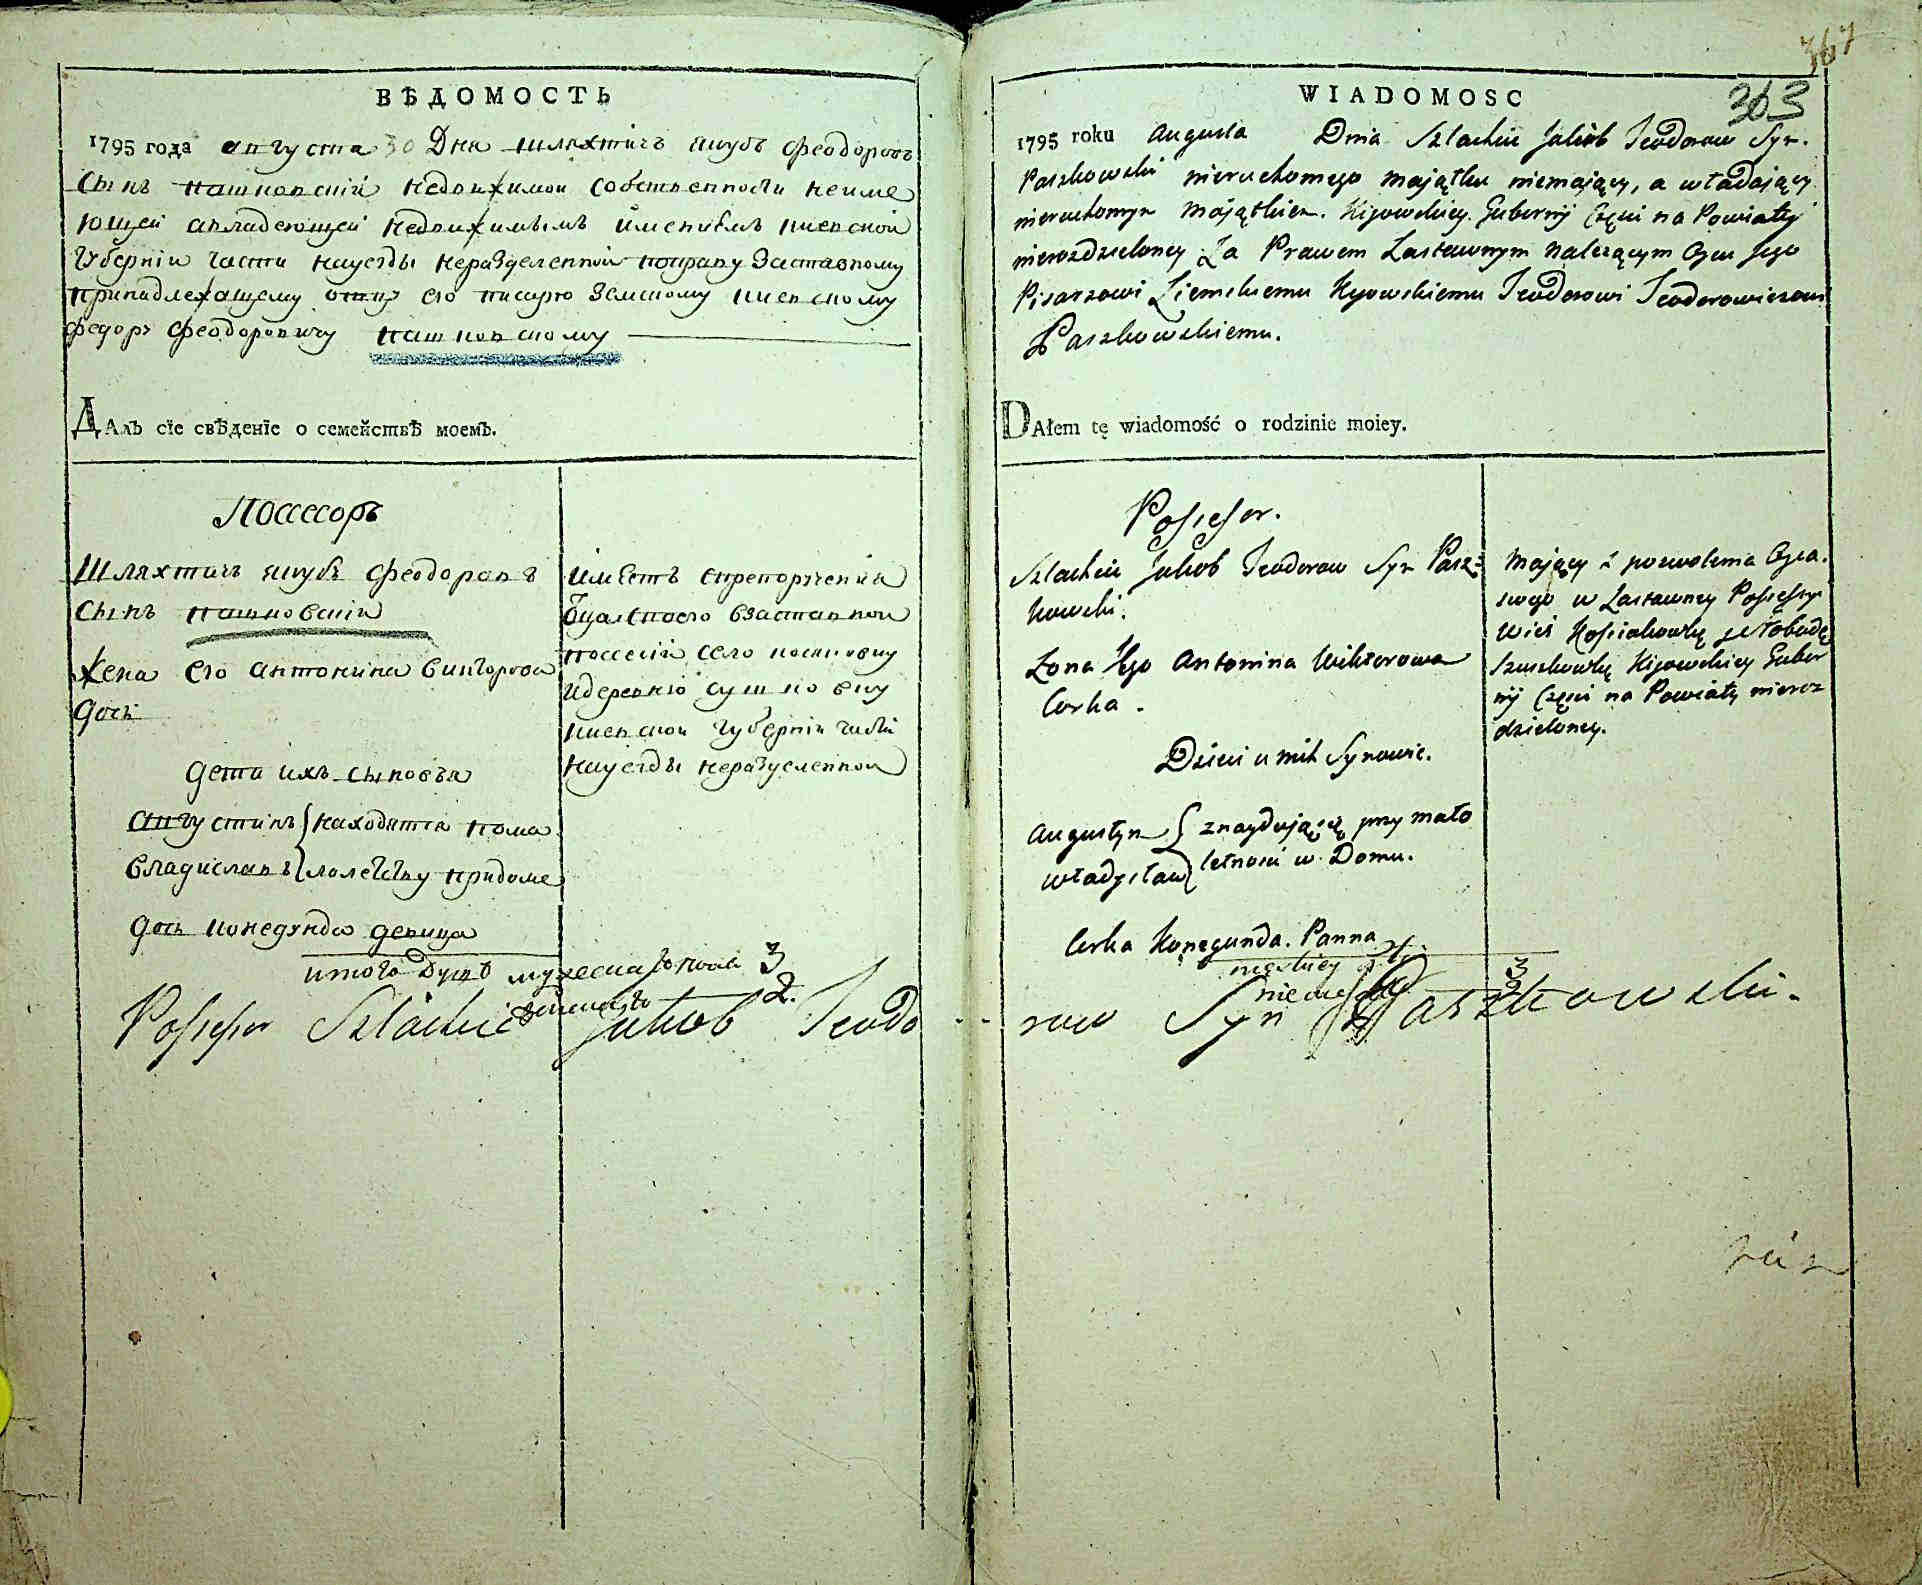 ВѢДОМОСТЬ
1795 года августа 30 Дня шляхтичь якубъ Феодоровъ
сынъ пашковскій недвижимой собственности неиме
ющей авладеющей недвижимымъ имениемъ киевской
губерніи части науезды неразделенной поправу Заставному
принадлежащему отцу его писарю Земскому киевскому
федору Феодоровичу пашковскому
ДАлъ сїе свѣденїе о семействѣ моемъ.
Поссесоръ
Шляхтичъ якубъ Феодоровъ
сынъ пашковскій
жена его антонина викторова
дочь
дети ихъ сыновья
августинъ находятся пома
владиславъ лолетству придоме
дочь конегунда девица
итого Душъ мужеска пола 3
женска 2.
имѣетъ
отца своего взаставной
поссесіи село
идеревню сушковку
киевской губерніи части
науезды неразделенной
Possessor Szlachcic Jakub Teodo
367
363
WIADOMOSC
1795 roku Augusta Dnia Szlachcic Jakób Teodorow Syn.
Paszkowski nieruchomego majątku niemający, a władający
nieruchomym Majątkiem. Kijowskiey Gubernij Częsci na Powiaty
nierozdzieloney Za Prawem Zastawnym nalezącym Oycu Jego
Pisarzowi Ziemskiemu Kijowskiemu Teodorowi Teodorowiczowi
Paszkowskiemu.
DAłem tę wiadomość o rodzinie moiey.
Possessor.
Szlachcic Jakob Teodorow Syn Pasz=
kowski.
Zona Jego Antonina Wiktorowa
Corka.
Dzieci u nich Synowie.
Augustyn znayduiąsię przy mało
Władysław letnosci w Domu.
Corka Konegunda. Panna
męskiey 3
niewie 2
Maiący z pozwolenia Oyca.
swego w Zastawney Possessyi
Wieś
Szuszkowkę Kijowskiey Guber
nij Częsci na Powiaty nieroz
dzieloney.
row Syn Paszkowski.